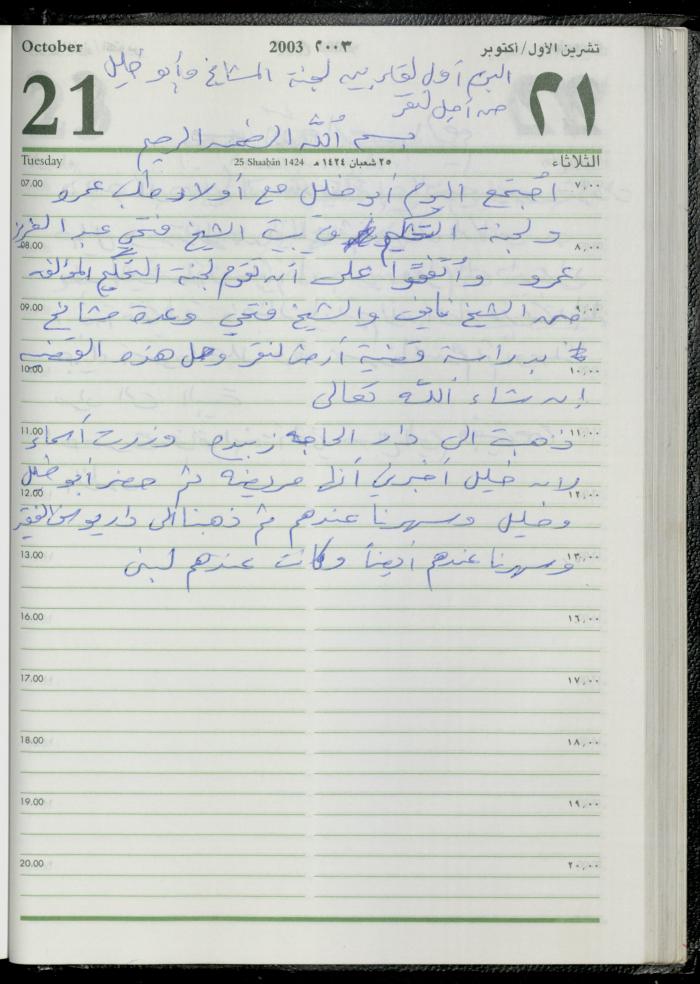 October 2003 ٢٠٠٣ تشرين الأول/أكتوبر
21 ٢١
اليوم أول لقاء بين لجنة المشايخ وأبو خليل
من أجل لنقر
بسم الله الرحمن الرحيم
Tuesday 25 Shaabān 1424 ٢٥ شعبان ١٤٢٤ هـ الثلاثاء
07.00 ٧,٠٠
أجتمع اليوم أبو خليل مع أولاد طلب عمرو
ولجنة التحكيم في بيت الشيخ فتحي عبد العزيز
08.00 ٨,٠٠
عمرو وأتفقوا على أن تقوم لجنة التحكيم المؤلفه
09.00 ٩,٠٠
من الشيخ نايف والشيخ فتحي وعدة مشايخ
بدراسة قضية أرض لنقر وحل هذه القضيه
10.00 ١٠,٠٠
إن شاء الله تعالى
11.00 ١١,٠٠
ذهبت الى دار الحاجه زبيده وزرت أسماء
لان خليل أخبرني أنها مريضه ثم حضر أبو خليل
12.00 ١٢,٠٠
وخليل وسهرنا عندهم ثم ذهبنا الى دار يونس الفقير
13.00 ١٣,٠٠
وسهرنا عندهم أيضاً وكانت عندهم لبنى
16.00 ١٦,٠٠
17.00 ١٧,٠٠
18.00 ١٨,٠٠
19.00 ١٩,٠٠
20.00 ٢٠,٠٠